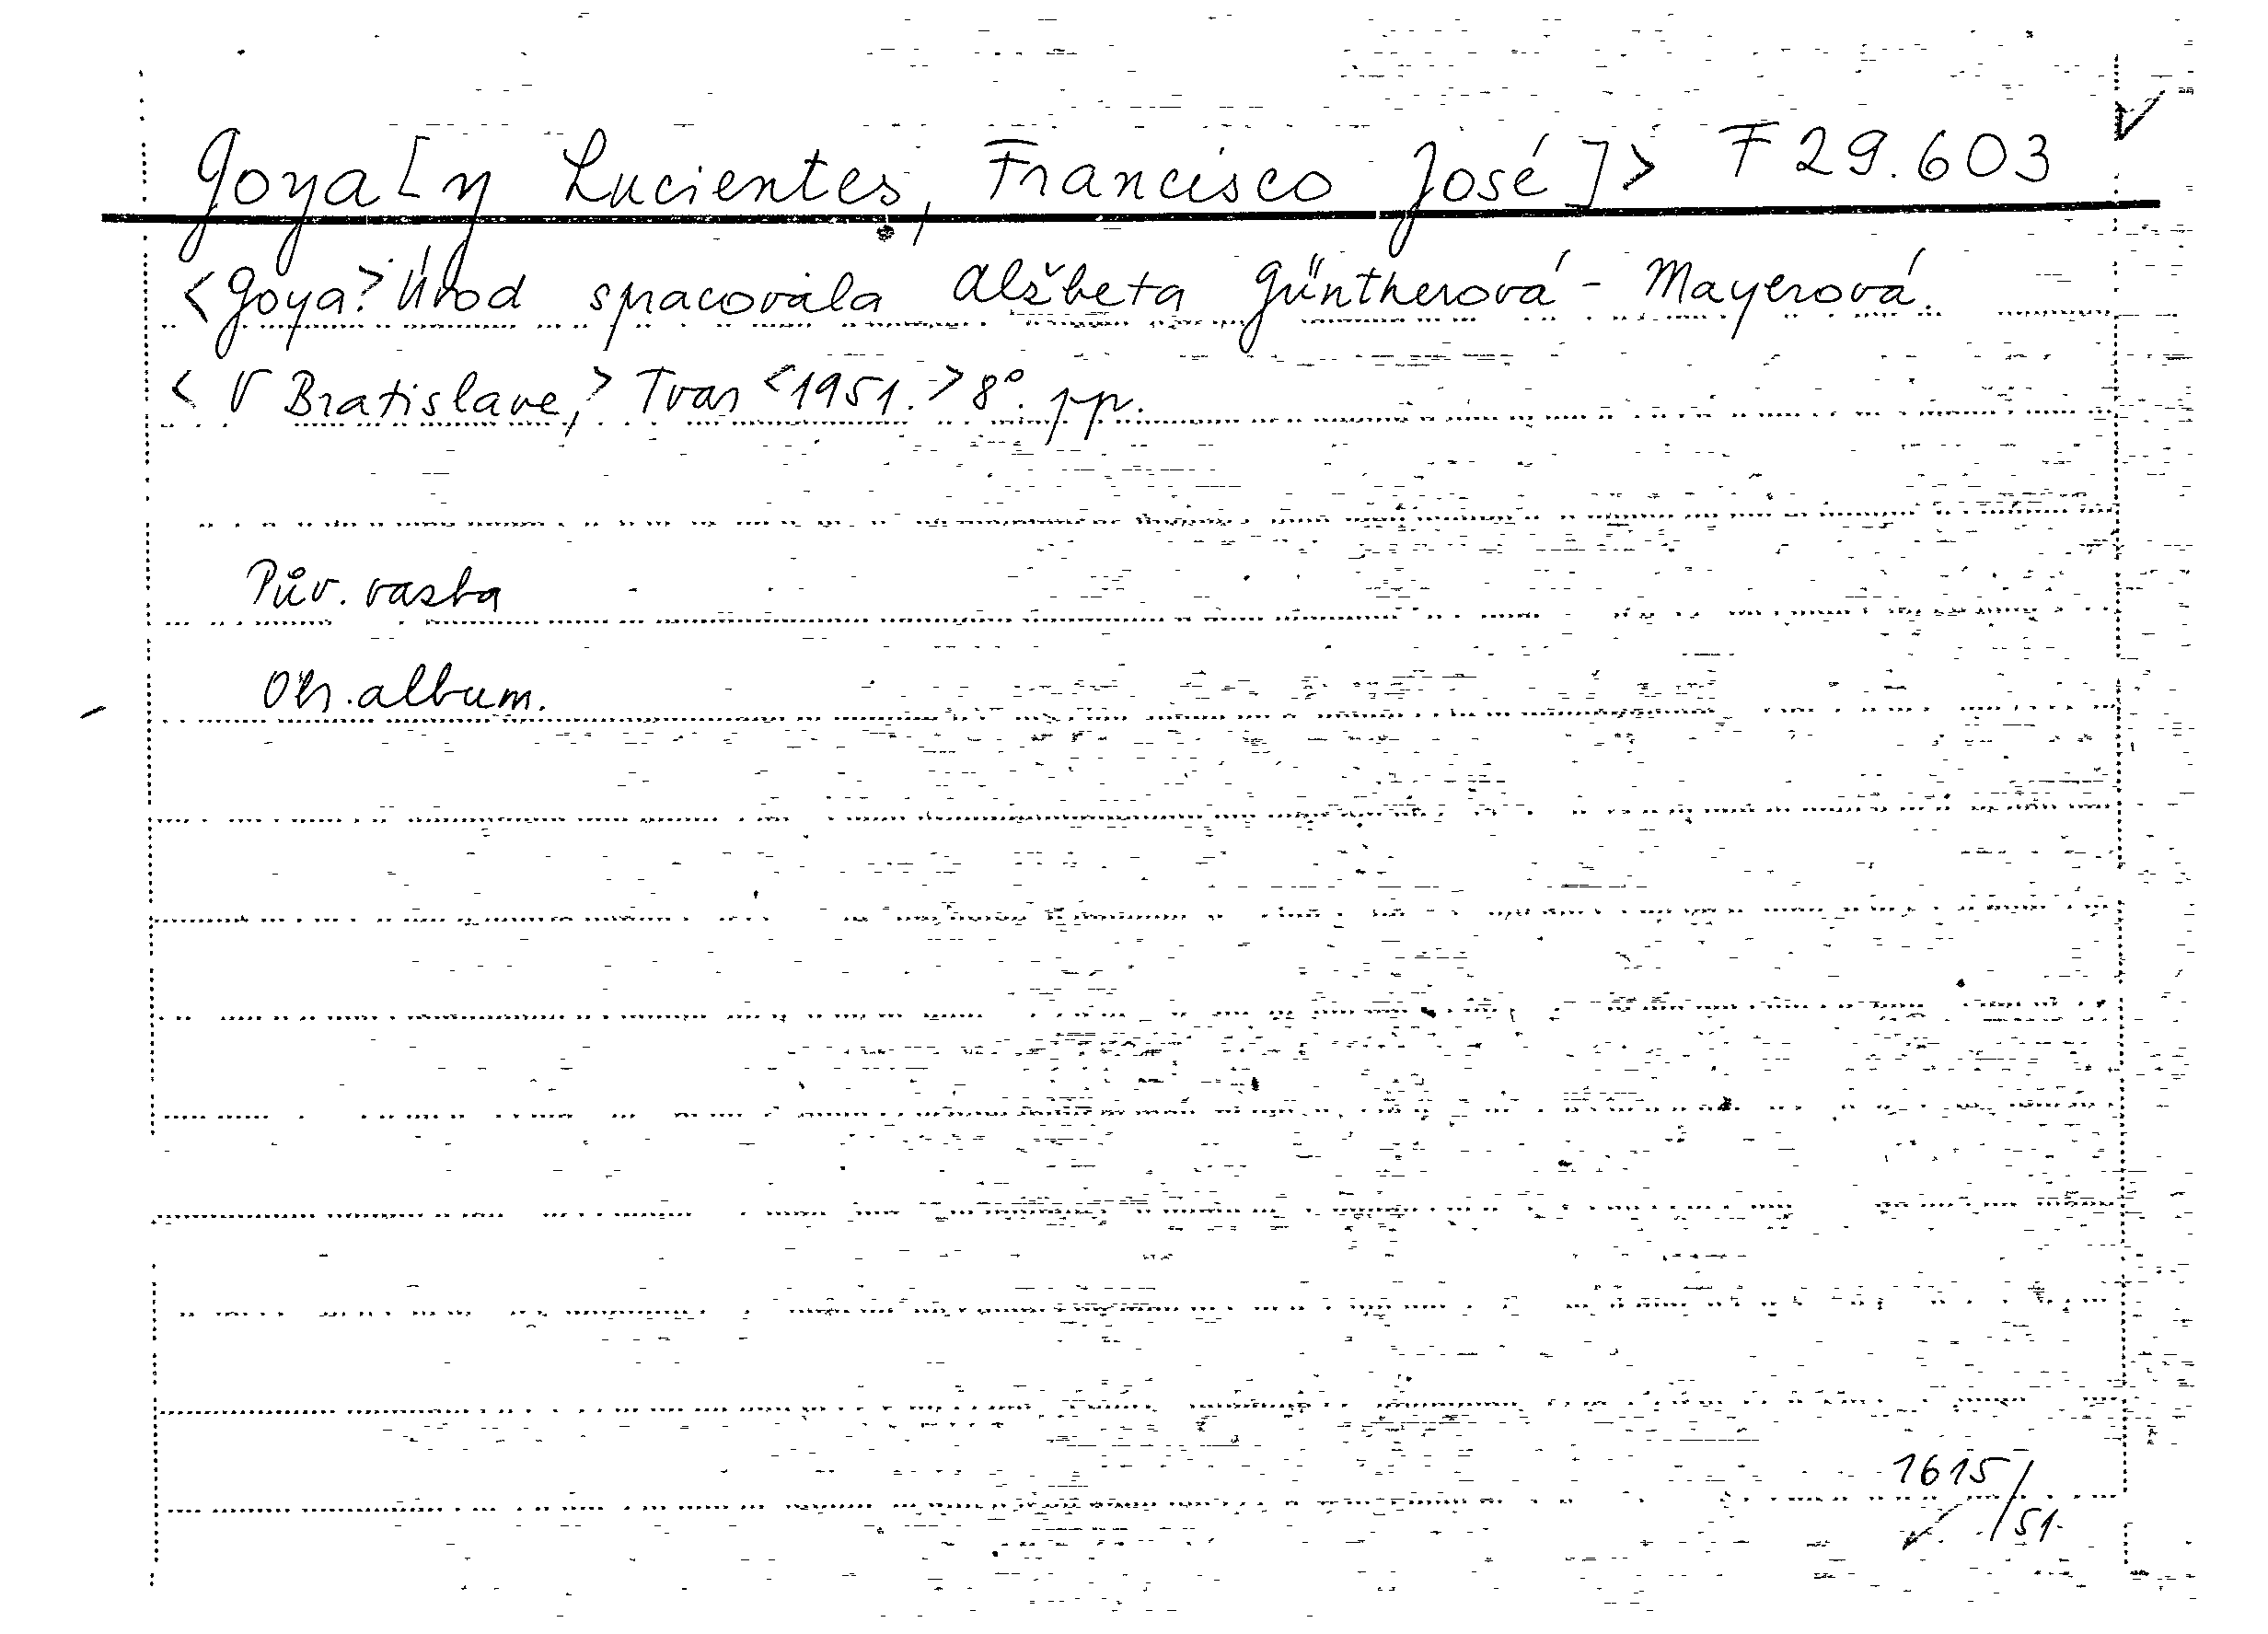 Goya [y Lucientes, Francisco José]> F 29.603
<Goya> Úvod spracovala Alžbeta Güntherová-Mayerová.
<V Bratislave,> Tvar <1951.> 8°. pp.
Pův. vazba
Obr. album.
1615/51.